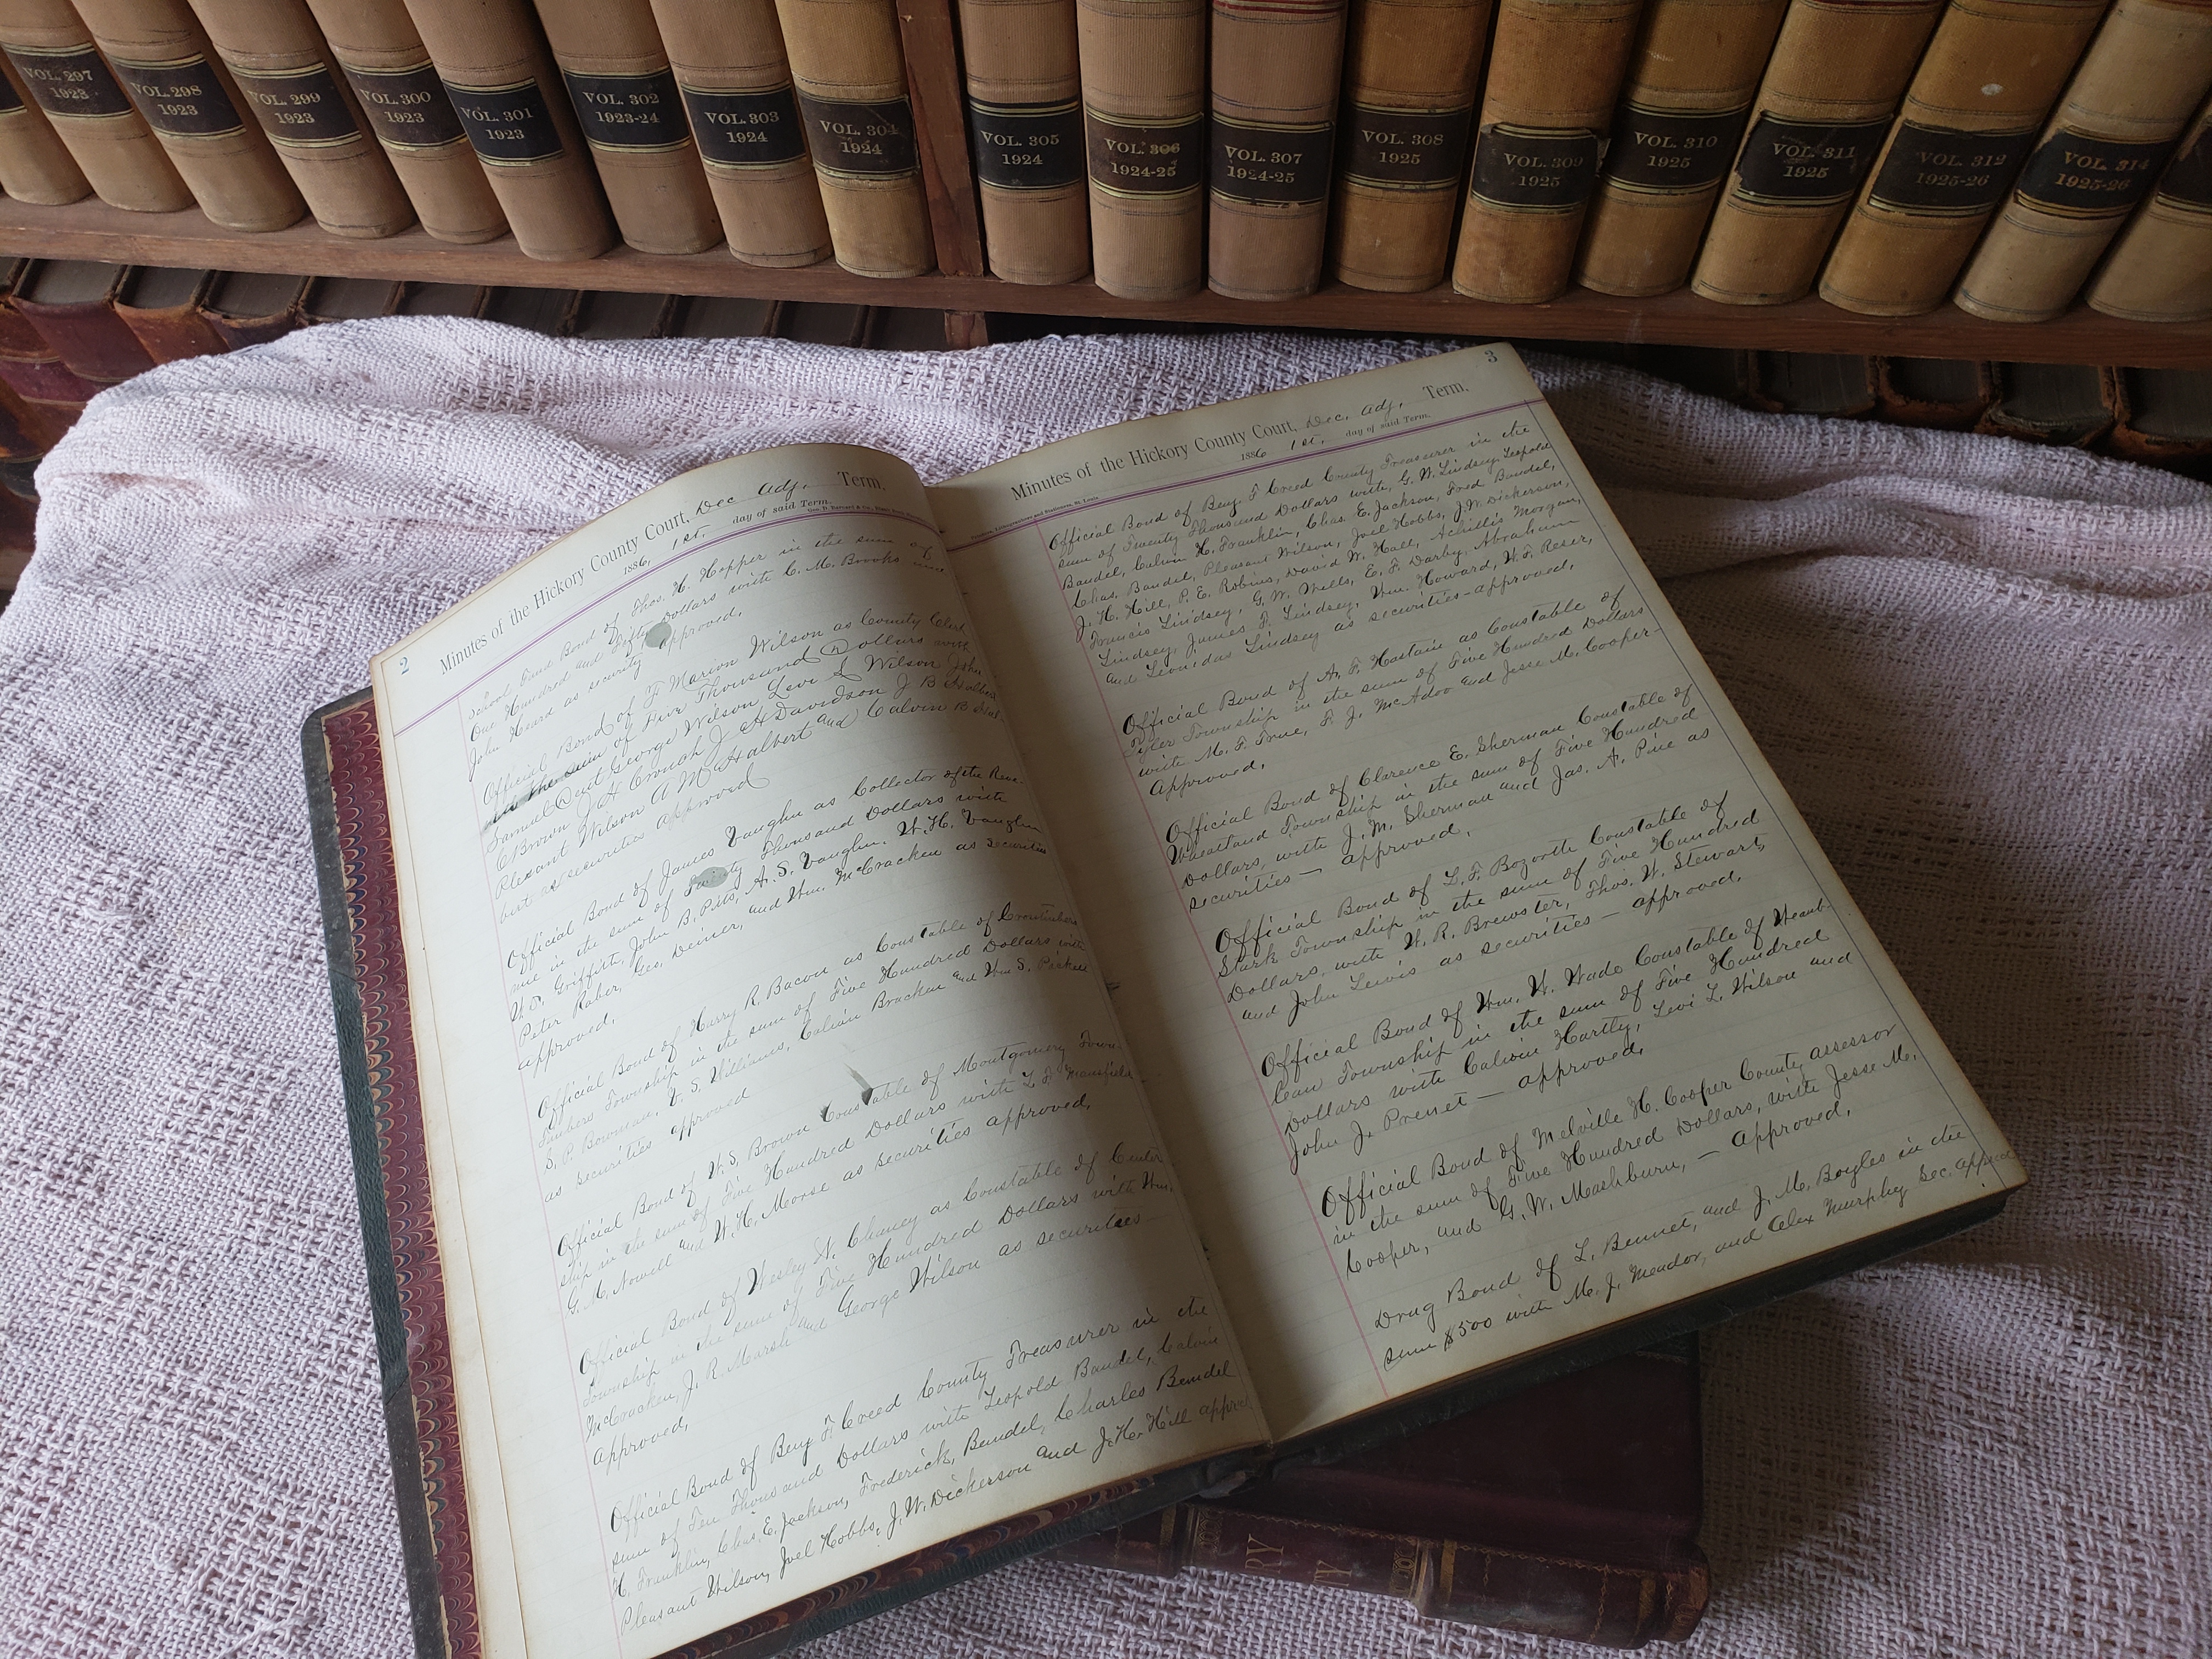 VOL. 297
1923
VOL. 298
1923
VOL. 299
1923
VOL. 300
1923
VOL. 301
1923
VOL. 302
1923-24
VOL. 303
1924
VOL. 304
1924
VOL. 305
1924
VOL. 306
1924-25
VOL. 307
1924-25
VOL. 308
1925
VOL. 309
1925
VOL. 310
1925
VOL. 311
1925
VOL. 312
1925-26
VOL. 314
1925-26
2
Minutes of the Hickory County Court, Dec Adj. Term.
1886, 1st. day of said Term.
School Fund Bond of Thos. H. Hopper in the sum of
One Hundred and Fifty Dollars with C. M. Brooks and
John Heard as security approved.
Official Bond of F. Marion Wilson as County Clerk
in the sum of Five Thousand Dollars with
Samuel George Wilson Levi L Wilson John
C Brown J H Crouch J H Davidson J B Halbert
Plesant Wilson A M Halbert and Calvin B Hal-
bert as securities approved
Official Bond of James Vaughn as Collector of the Reve-
nue in the sum of Twenty Thousand Dollars with
W. D. Griffith, John B. Pitts, A. S. Vaughn, W. H. Vaughn
Peter Raber, Geo. Deiner, and Wm. McCracken as securities
approved.
Official Bond of Harry R. Bacon as Constable of Crontimber
Township in the sum of Five Hundred Dollars with
S. P. Bowman, W. S. Williams, Calvin Bracken and Wm S. Pickett
as securities approved
Official Bond of W. S. Brown Constable of Montgomery Town-
ship in the sum of Five Hundred Dollars with L. F. Mansfield
G. M. Nowell and W. H. Morse as securities approved.
Official Bond of Wesley N. Chaney as Constable of Center
Township in the sum of Five Hundred Dollars with Wm.
McCracken, J. R. Marsh and George Wilson as securities
approved.
Official Bond of Benj F. Creed County Treasurer in the
sum of Ten Thousand Dollars with Leopold Bandel, Calvin
H. Franklin, Chas. E. Jackson, Frederick Bandel, Charles Bandel
Pleasant Wilson, Joel Hobbs, J. W. Dickerson and J. H. Hill approved
3
Minutes of the Hickory County Court, Dec. Adj. Term.
1886 1st. day of said Term.
Official Bond of Benj. F Creed County Treasurer in the
sum of Twenty Thousand Dollars with, G. W. Lindsey, Leopold
Bandel, Calvin H. Franklin, Chas. E. Jackson, Fred Bandel,
Chas. Bandel, Pleasant Wilson, Joel Hobbs, J. W. Dickerson,
J. H. Hill, P. E. Robins, David W. Hall, Achillis Morgan,
Francis Lindsey, G. W. Mills, E. F. Darby, Abraham
Lindsey, James F. Lindsey, Wm. Howard, W. F. Reser,
and Leonidas Lindsey as securities - approved.
Official Bond of A. F. Hastain as Constable of
Tyler Township in the sum of Five Hundred Dollars
with M. F. True, F. J. McAdoo and Jesse M. Cooper -
Approved.
Official Bond of Clarence E. Sherman Constable of
Wheatland Township in the sum of Five Hundred
Dollars, with J. M. Sherman and Jas. A. Pine as
securities - approved.
Official Bond of L. F. Bozorth Constable of
Stark Township in the sum of Five Hundred
Dollars, with W. R. Brewster, Thos. W. Stewart,
and John Lewis as securities - approved.
Official Bond of Wm. W. Wade Constable of Weaub-
leau Township in the sum of Five Hundred
Dollars with Calvin Hartly, Levi L. Wilson and
John J. - approved.
Official Bond of Melville H. Cooper County assessor
in the sum of Five Hundred Dollars, with Jesse M.
Cooper, and G. W. Mashburn, - Approved.
Drug Bond of L. Bennet, and J. M. Boyles in the
sum $500 with M. J. Meador, and Alex Murphy Sec. approved
RY